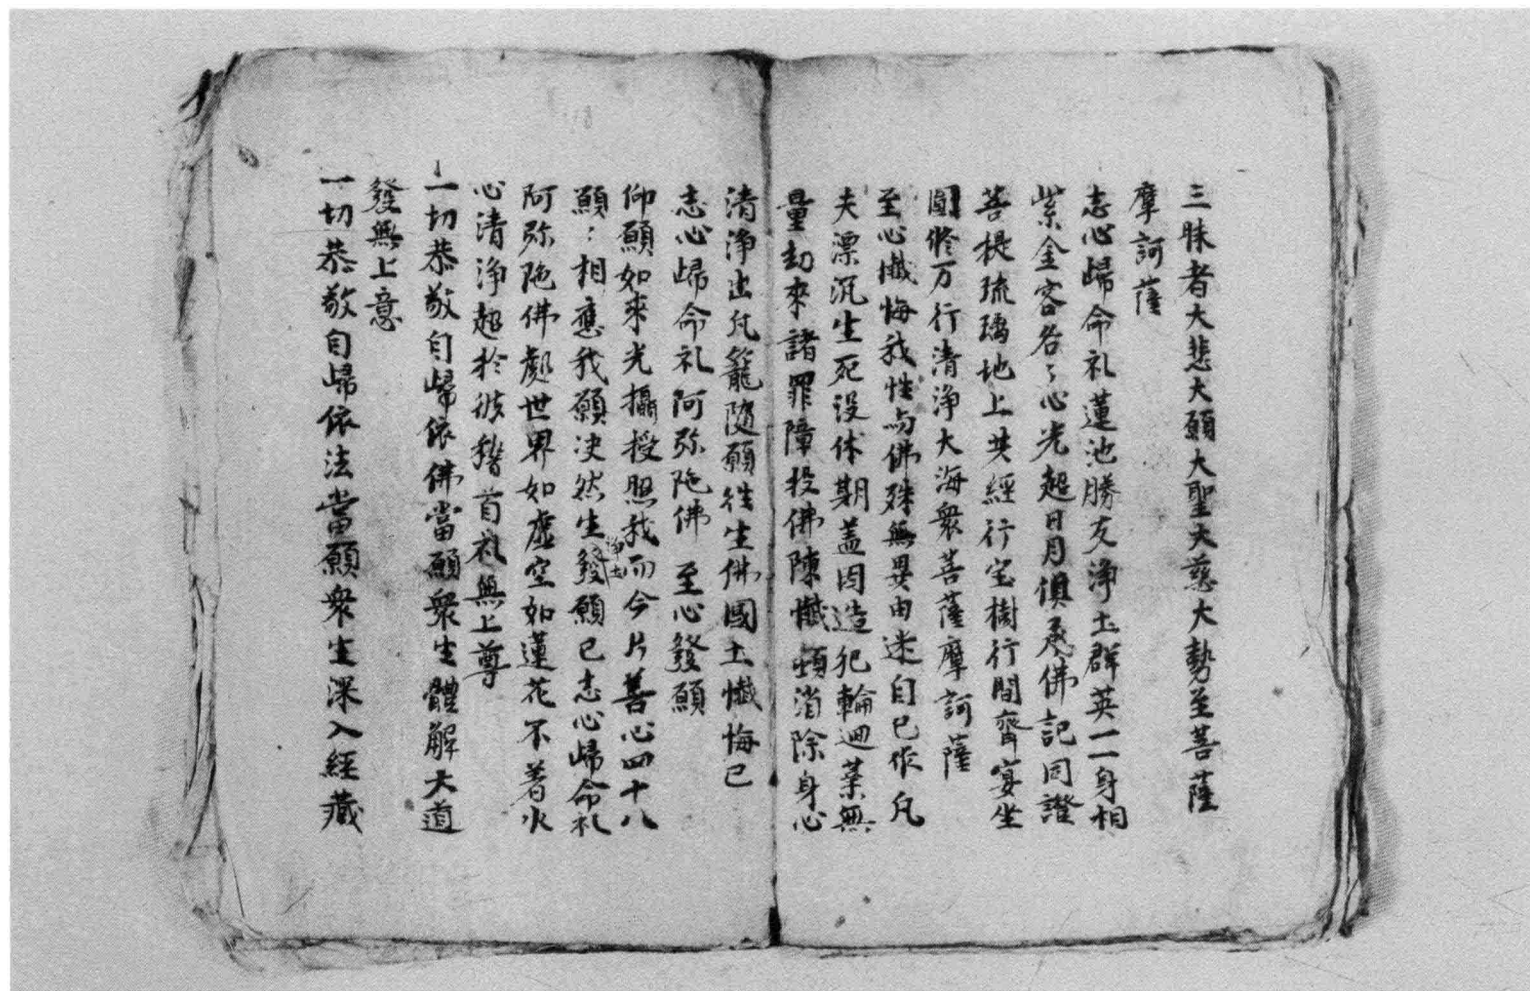 三昧者大悲大願大聖大慈大勢至菩薩
摩訶薩
志心歸命礼蓮池勝友淨土群英一一身相
紫金容各々心光超日月俱承佛記同證
菩提琉璃地上共經行宝樹行間齊宴坐
圓修万行清淨大海衆菩薩摩訶薩
至心懴悔我性与佛殊無異由迷自已作凡
夫漂沉生死没休期盖因造犯輪迴業無
量刼來諸罪障投佛陳懴頓消除身心
清淨出凡籠隨願往生佛國土懴悔已
志心歸命礼阿弥陁佛 至心發願
仰願如來光攝授照我而今片善心四十八
願：相應我願决然生淨土發願已志心歸命礼
阿弥陁佛處世界如虛空如蓮花不著水
心清淨超於彼稽首礼無上尊
一切恭敬自歸依佛當願衆生體解大道
發無上意
一切恭敬自歸依法當願衆生深入經藏